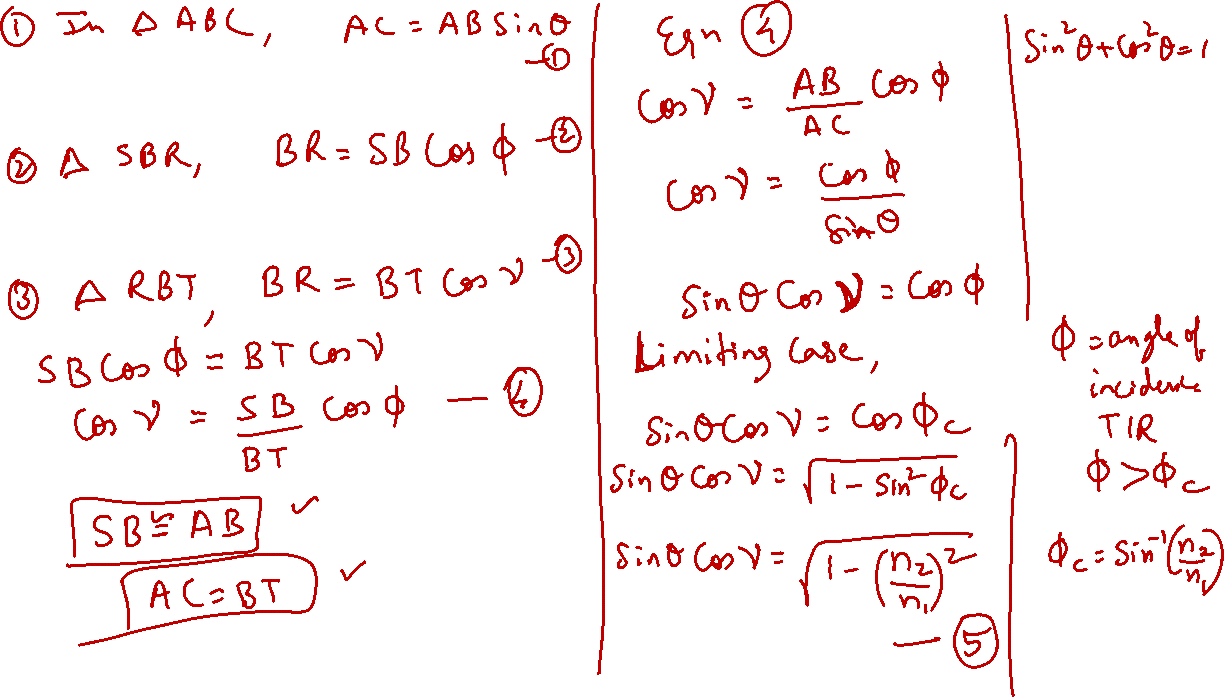 ① In Δ ABC, AC = AB Sinθ
—①
② Δ SBR, BR = SB Cos ϕ —②
③ Δ RBT, BR = BT Cos γ —③
SB Cos ϕ = BT Cos γ
Cos γ = SB/BT Cos ϕ — ④
SB ≅ AB ✓
AC = BT ✓
Eqn ④
Cos γ = AB/AC Cos ϕ
Cos γ = Cos ϕ/Sin θ
Sin θ Cos γ = Cos ϕ
Limiting Case,
Sinθ Cos γ = Cos ϕc
Sin θ Cos γ = √(1 – Sin² ϕc)
Sinθ Cos γ = √(1 – (n₂/n₁)²)
— ⑤
Sin²θ + Cos²θ = 1
ϕ = angle of
incidence
TIR
ϕ > ϕc
ϕc = Sin⁻¹(n₂/n₁)